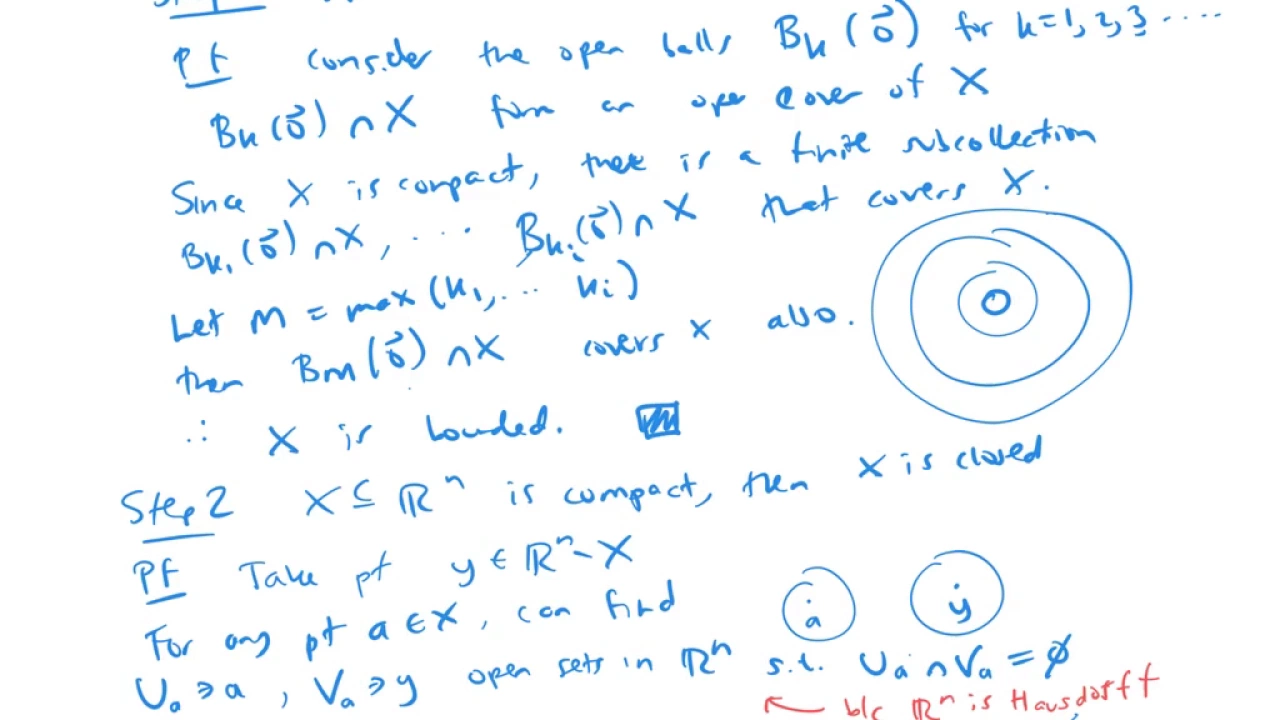 Pf consider the open balls Bk(0⃗) for k=1,2,3 ....
Bk(0⃗) ∩ X form an open cover of X
Since X is compact, there is a finite subcollection
Bk₁(0⃗) ∩ X, .... Bkᵢ(0⃗) ∩ X that covers X.
Let M = max(k₁,... kᵢ)
then BM(0⃗) ∩ X covers X also.
∴ X is bounded.
Step 2 X ⊆ ℝⁿ is compact, then X is closed
Pf Take pt y ∈ ℝⁿ - X
For any pt a ∈ X, can find
a
y
Uₐ ∋ a, Vₐ ∋ y open sets in ℝⁿ s.t. Uₐ ∩ Vₐ = ∅
← b/c ℝⁿ is Hausdorff